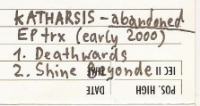 KATHARSIS – abandoned
EP trx (early 2000)
1. Deathwards
2. Shine Beyonde
IEC II
POS. HIGH
DATE